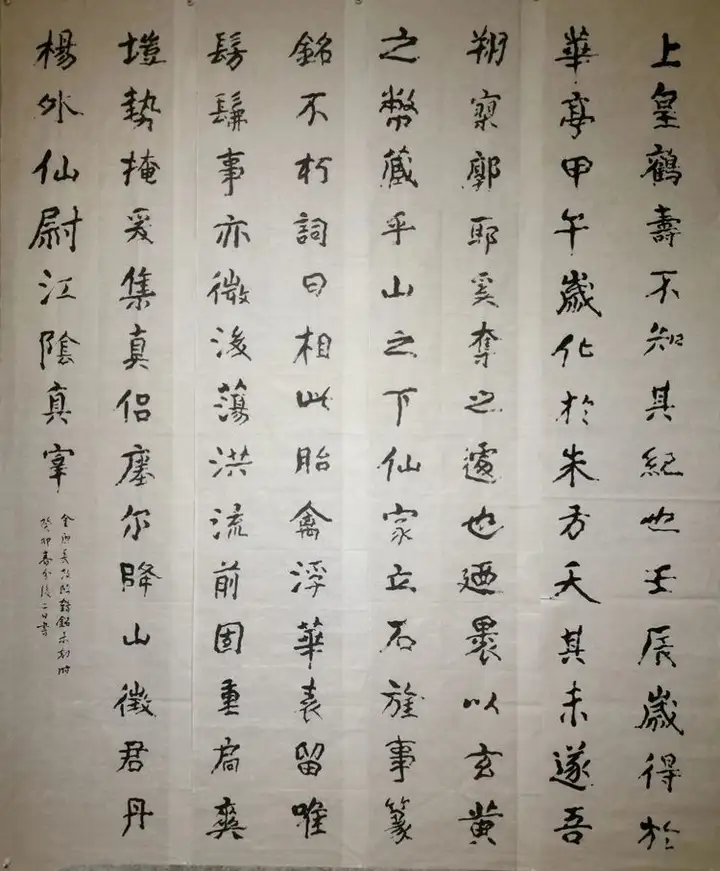 上皇鶴壽不知其紀也壬辰歲得於
華亭甲午歲化於朱方天其未遂吾
翔寥廓耶奚奪之遽也廼裹以玄黄
之幣藏乎山之下仙家立石旌事篆
銘不朽詞曰相此胎禽浮華表留唯
髣髴事亦微後蕩洪流前固重扃爽
塏勢掩爰集真侶瘞尔降山徵君丹
楊外仙尉江陰真宰
癸卯春分後二日書